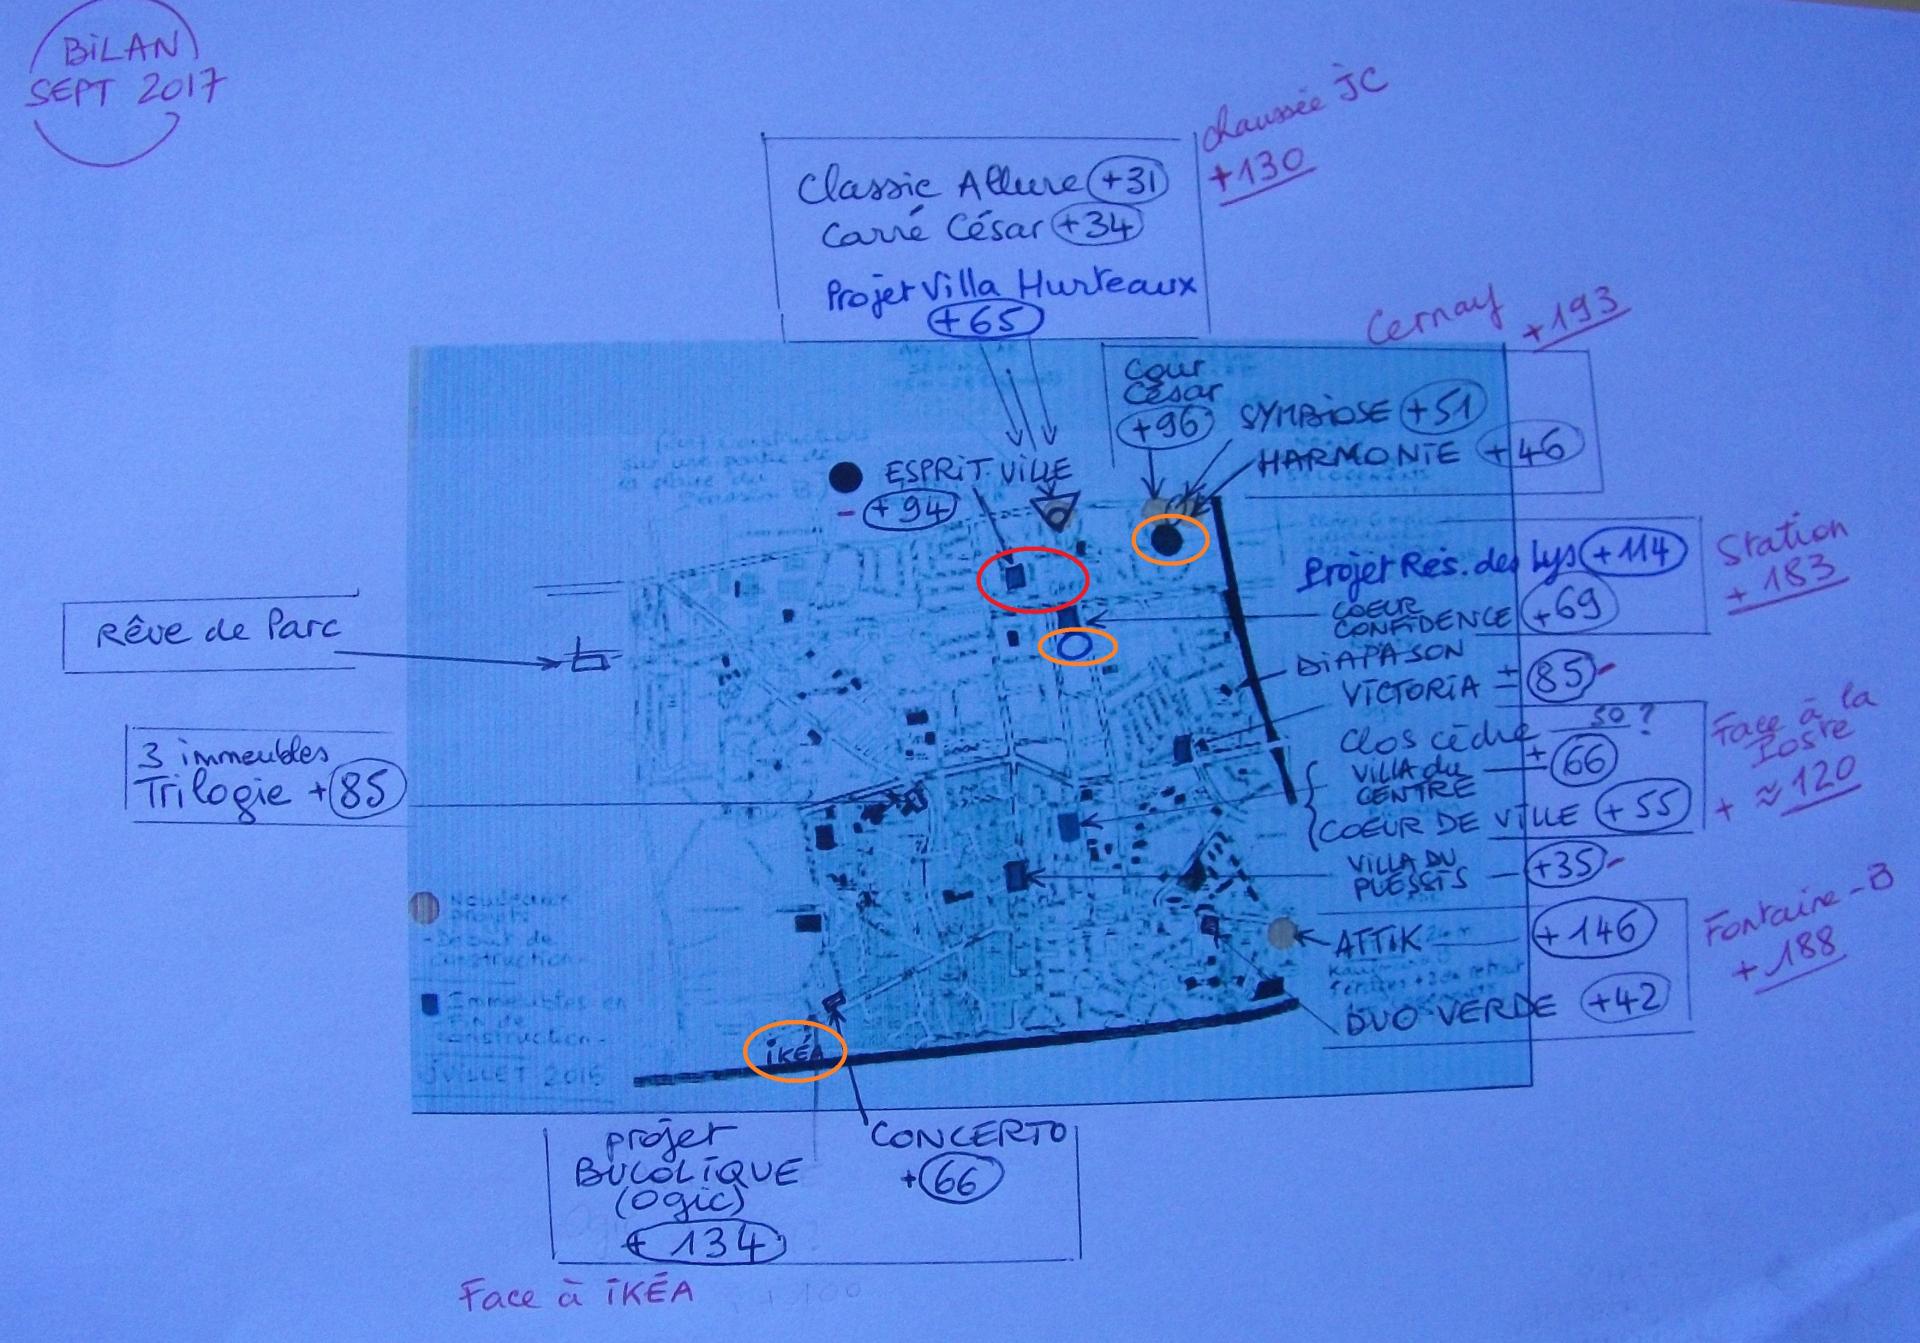 BiLAN
SEPT 2017
chaussée JC
+130
Classic Allure +31
Carré César +34
Projet Villa Hurteaux
+65
Cernay +193
Cour
César
+96
SYMBiOSE +51
HARMONIE +46
ESPRiT VILLE
- +94
Projet Res. des Lys +114
Station
+ 183
COEUR
CONFIDENCE +69
Rêve de Parc
DiAPASON
VICTORIA + 85 -
Clos cèdre 50 ?
ViLLA du
CENTRE + 66
COEUR DE VILLE + 55
Face à la
Poste
+ ≈ 120
3 immeubles
Trilogie + 85
ViLLA DU
PLESSIS +35 -
ATTiK + 146
DUO VERDE +42
Fontaine-B
+ 188
Nouveaux
projets
- Début de
construction -
Immeubles en
fin de
construction -
JUILLET 2016
iKÉA
projet
BUCOLiQUE
(Ogic)
+ 134
CONCERTO
+ 66
Face à iKÉA